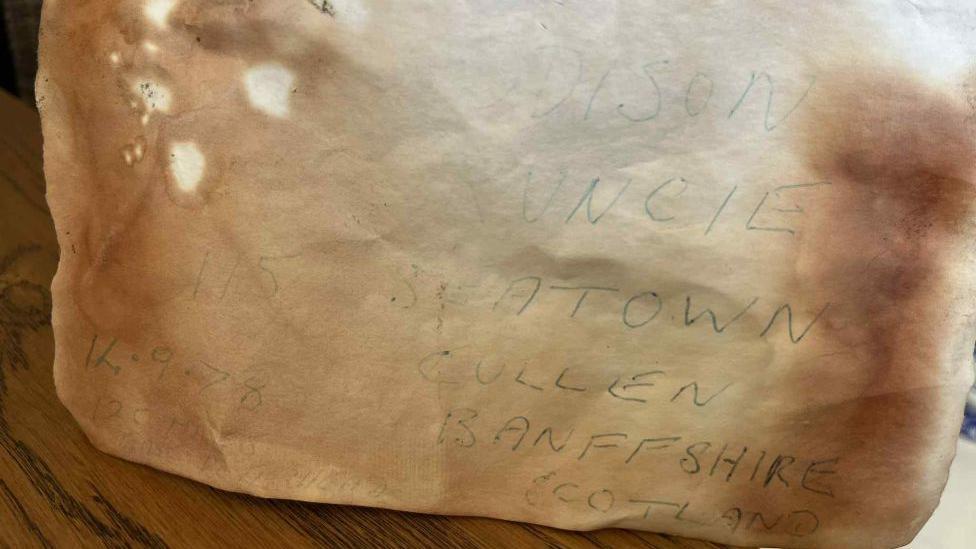 DISON
UNCIE
115 SEATOWN
CULLEN
BANFFSHIRE
SCOTLAND
14.9.78